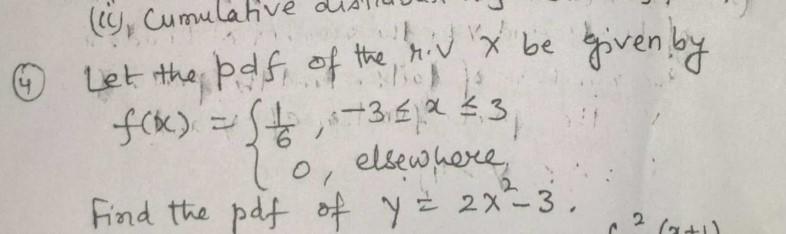 (ii), Cumulative
④ Let the pdf of the r.v X be given by
f(x) = { 1/6 , -3 ≤ x ≤ 3
0, elsewhere,
Find the pdf of y = 2x² - 3.